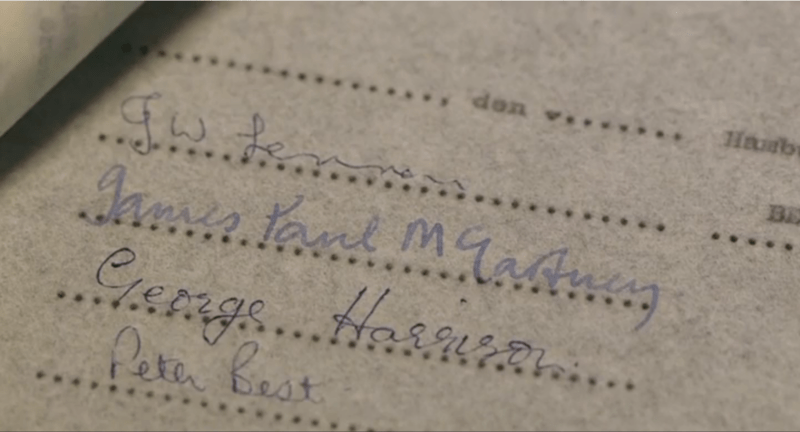 ........................, den ........... Hamb
J W Lennon
James Paul McCartney
George Harrison
Peter Best